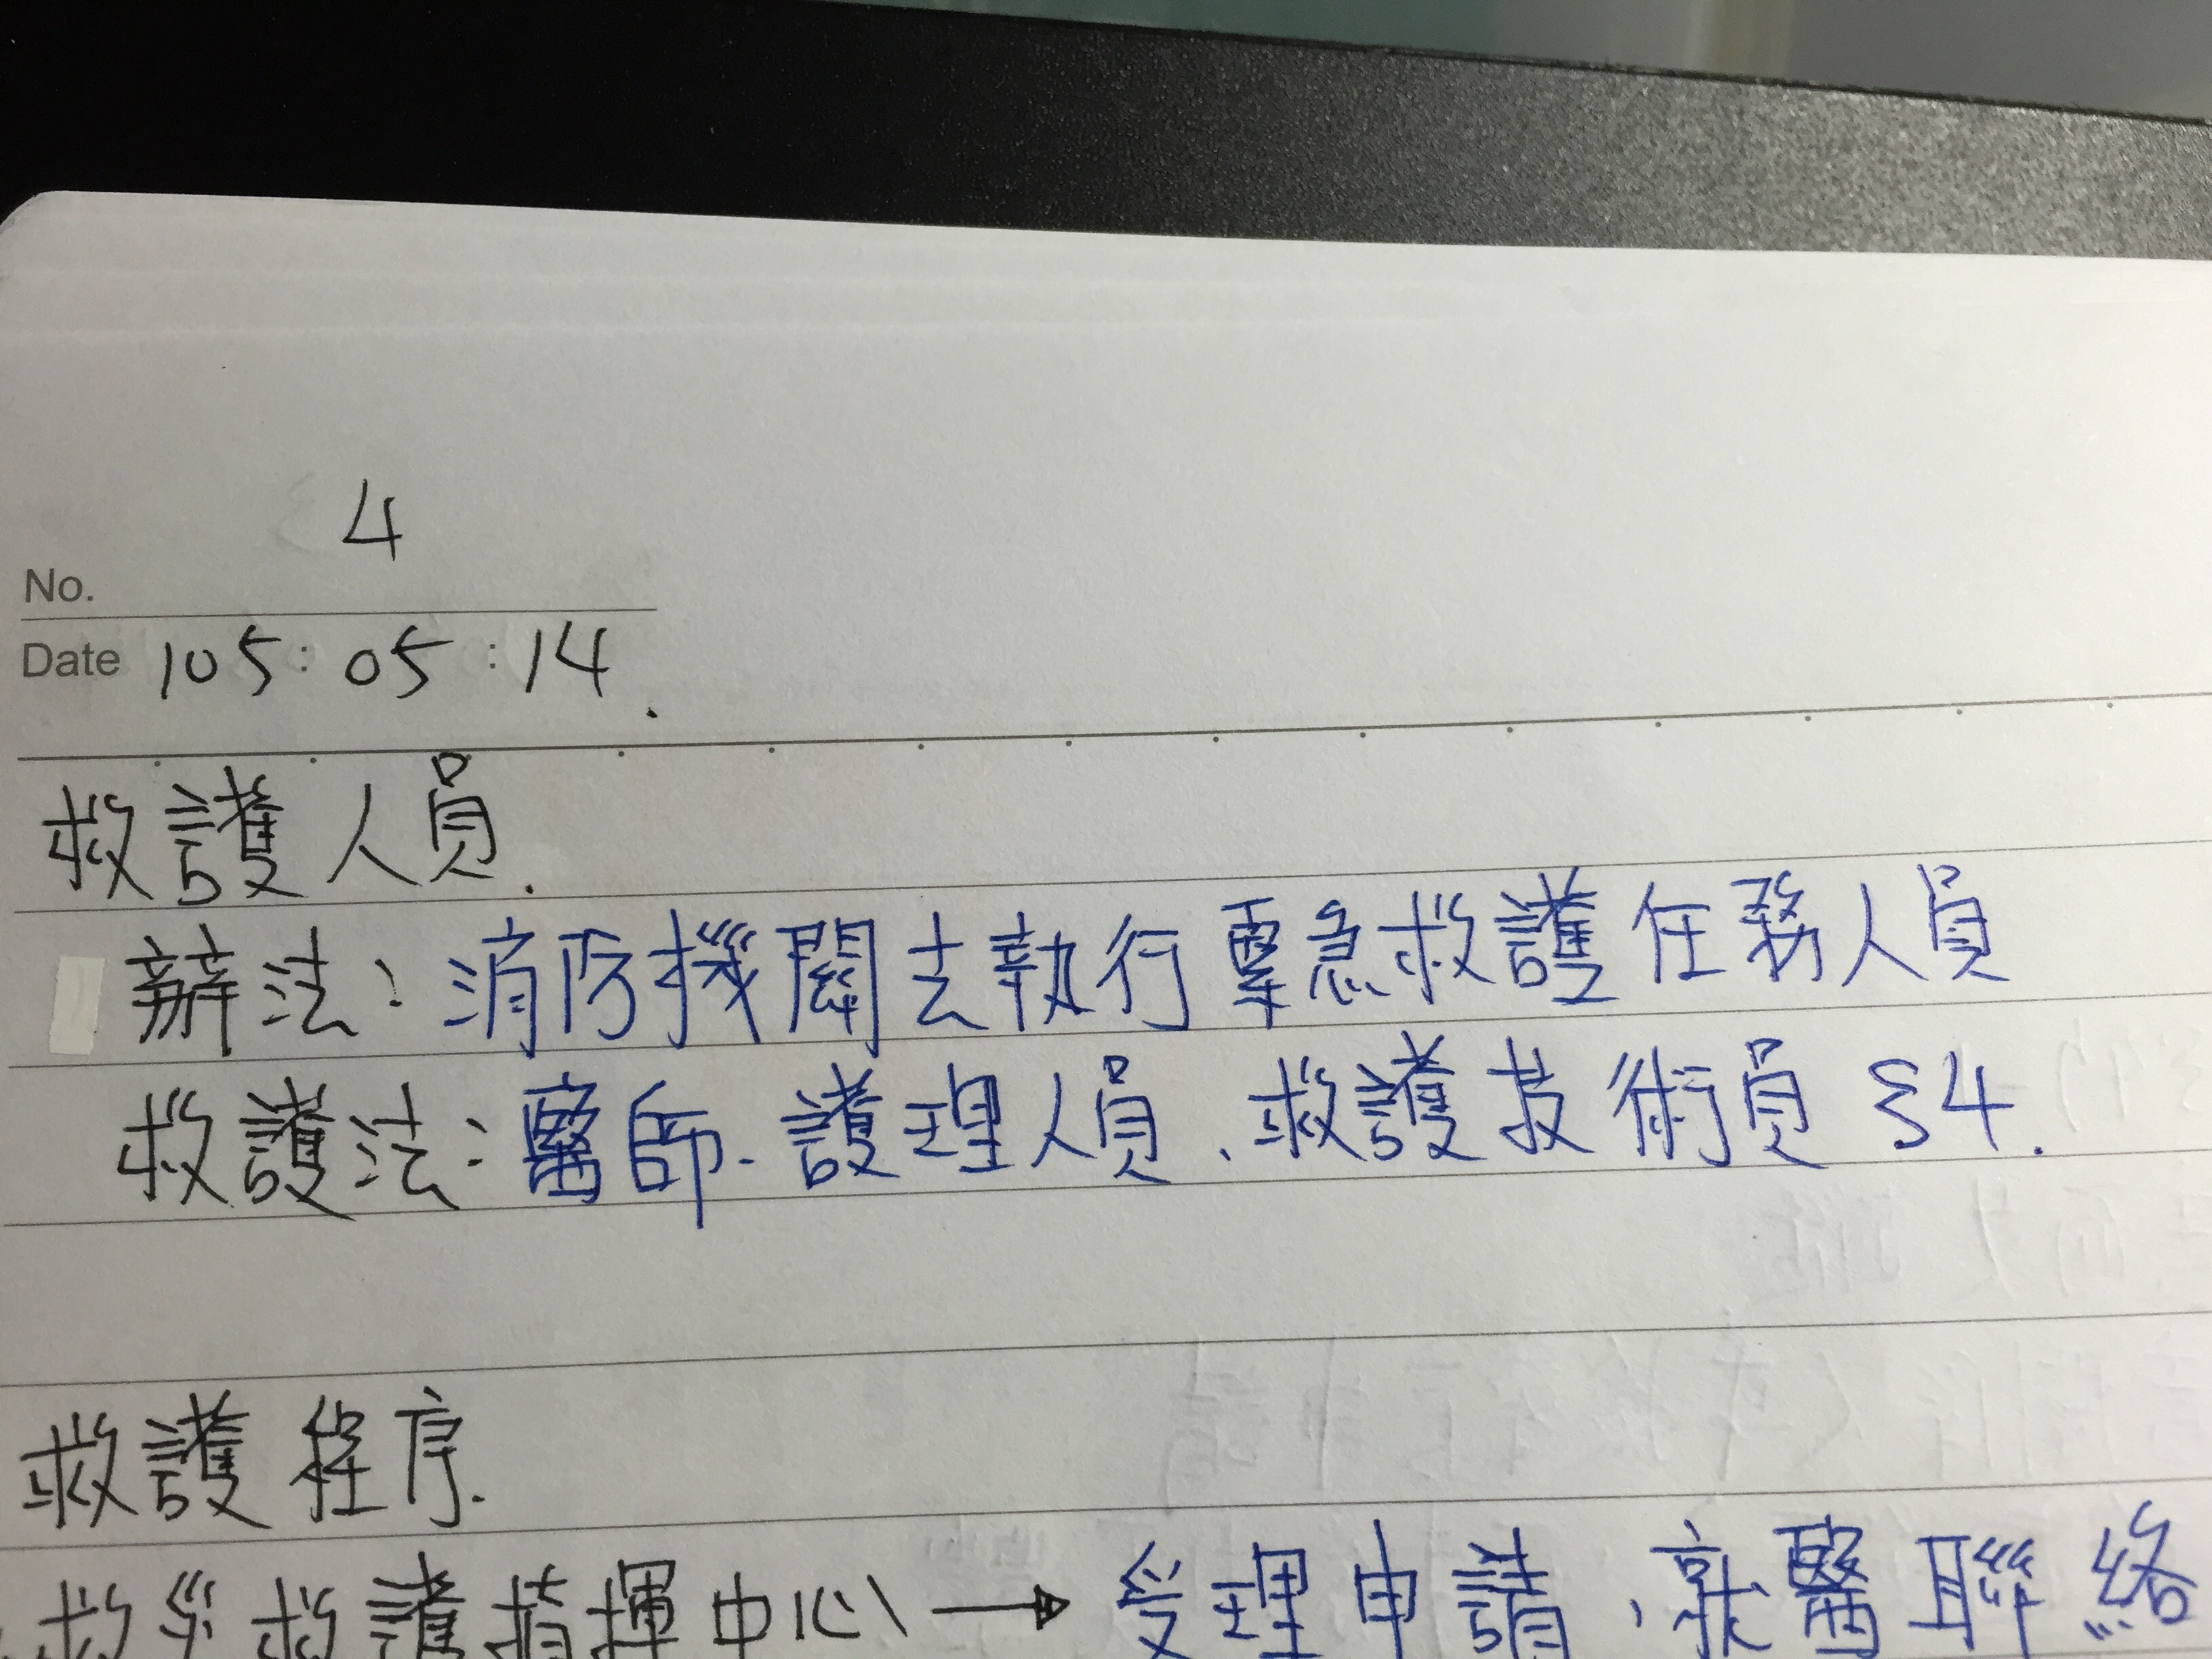 4
No.
Date 105:05:14.
救護人員.
辦法:消防機關去執行緊急救護任務人員
救護法:醫師、護理人員、救護技術員 §4.
救護程序.
救災救護指揮中心→受理申請、就醫聯絡